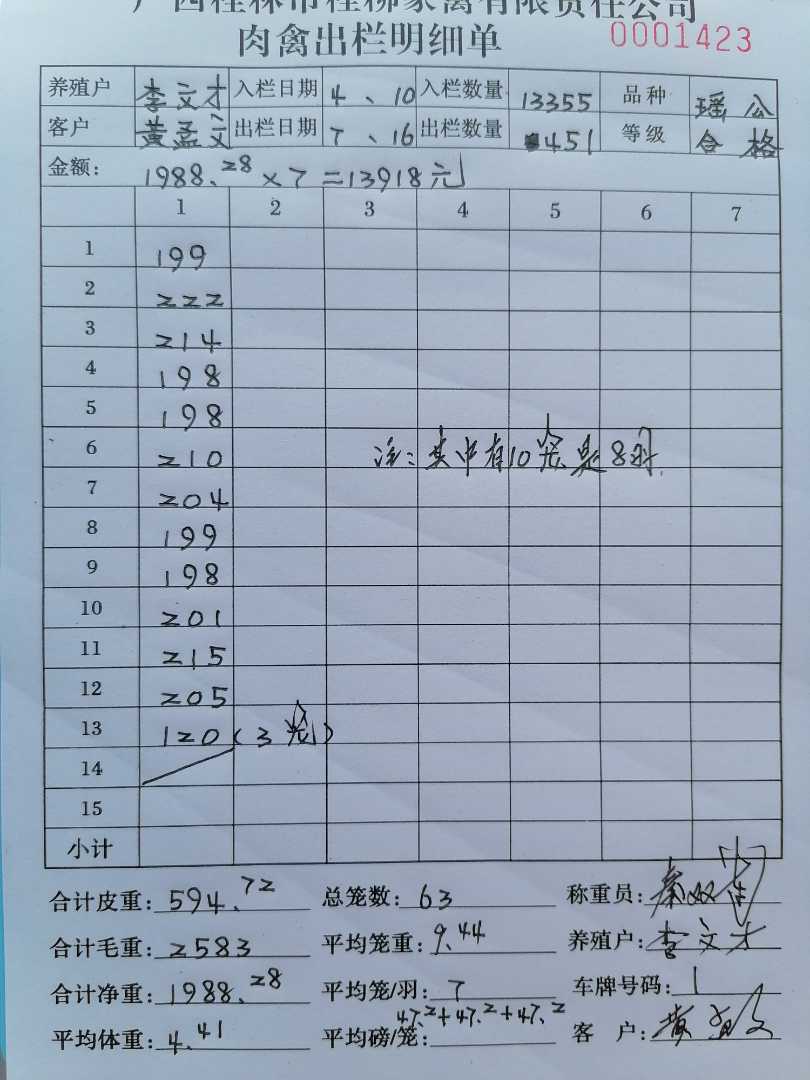 广西桂林市桂柳家禽有限责任公司
肉禽出栏明细单 0001423
养殖户 李文才 入栏日期 4、10 入栏数量 13355 品种 瑶公
客户 黄孟文 出栏日期 7、16 出栏数量 451 等级 合格
金额: 1988.28×7=13918元
1 2 3 4 5 6 7
1 199
2 222
3 214
4 198
5 198
6 210 注:其中有10笼是8羽
7 204
8 199
9 198
10 201
11 215
12 205
13 120(3笼)
14
15
小计
合计皮重: 594.72 总笼数: 63 称重员:
合计毛重: 2583 平均笼重: 9.44 养殖户: 李文才
合计净重: 1988.28 平均笼/羽: 7 车牌号码: 1
平均体重: 4.41 平均磅/笼: 47.2+47.2+47.2 客 户: 黄孟文